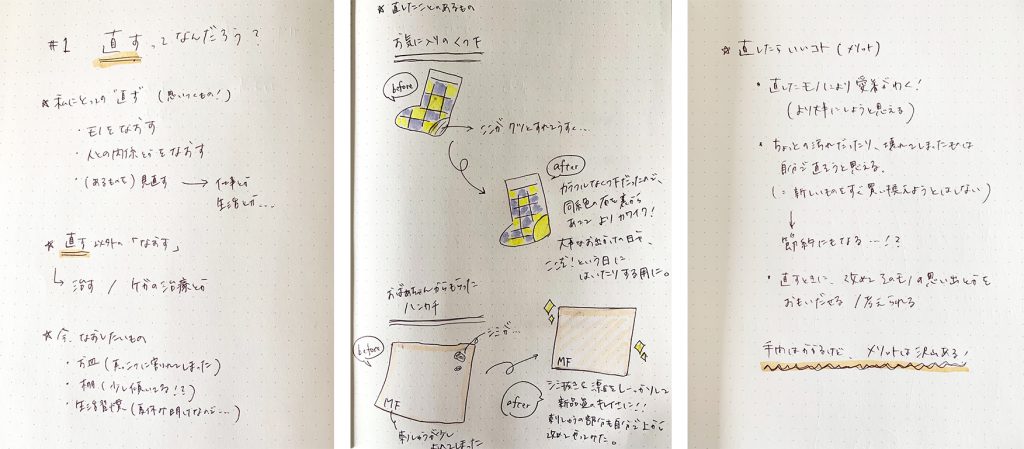 #1 直すってなんだろう?
☆ 私にとっての "直す" (思いつくもの!)
・モノをなおす
・人との関係とかをなおす
・(あるものを) 見直す → 仕事とか
生活とか…
☆ 直す 以外の「なおす」
治す / ケガの治療とか
☆ 今、なおしたいもの
・お皿 (真っ二つに割れてしまった)
・棚 (少し傾いてる!?)
・生活習慣 (夏休み明けなので…)
☆ 直したことのあるもの
お気に入りのくつ下
before
→ ここが クツとすれてうすく…
after
カラフルなくつ下だったので、
同系色の布を裏から
あてて よりカワイク!
大事なお出かけの日や、
ここぞ!という日に
はいたりする用に。
おばあちゃんからもらった
ハンカチ
before
シミが…
MF
刺しゅうが少し
とれてしまった
MF
after
シミ抜きと漂白をしっかりして
新品並のキレイさに!!
刺しゅうの部分も自分で上から
改めてぬいつけた。
☆ 直したらいいコト (メリット)
・直したモノにより愛着がわく!
(より大事にしようと思える)
・ちょっとの汚れだったり、壊れてしまったモノは
自分で直そうと思える。
(= 新しいものをすぐ買い換えようとはしない)
↓
節約にもなる…!?
・直すときに、改めてそのモノの思い出とかを
おもいだせる / 考えられる
手間はかかるけど、メリットは沢山ある!